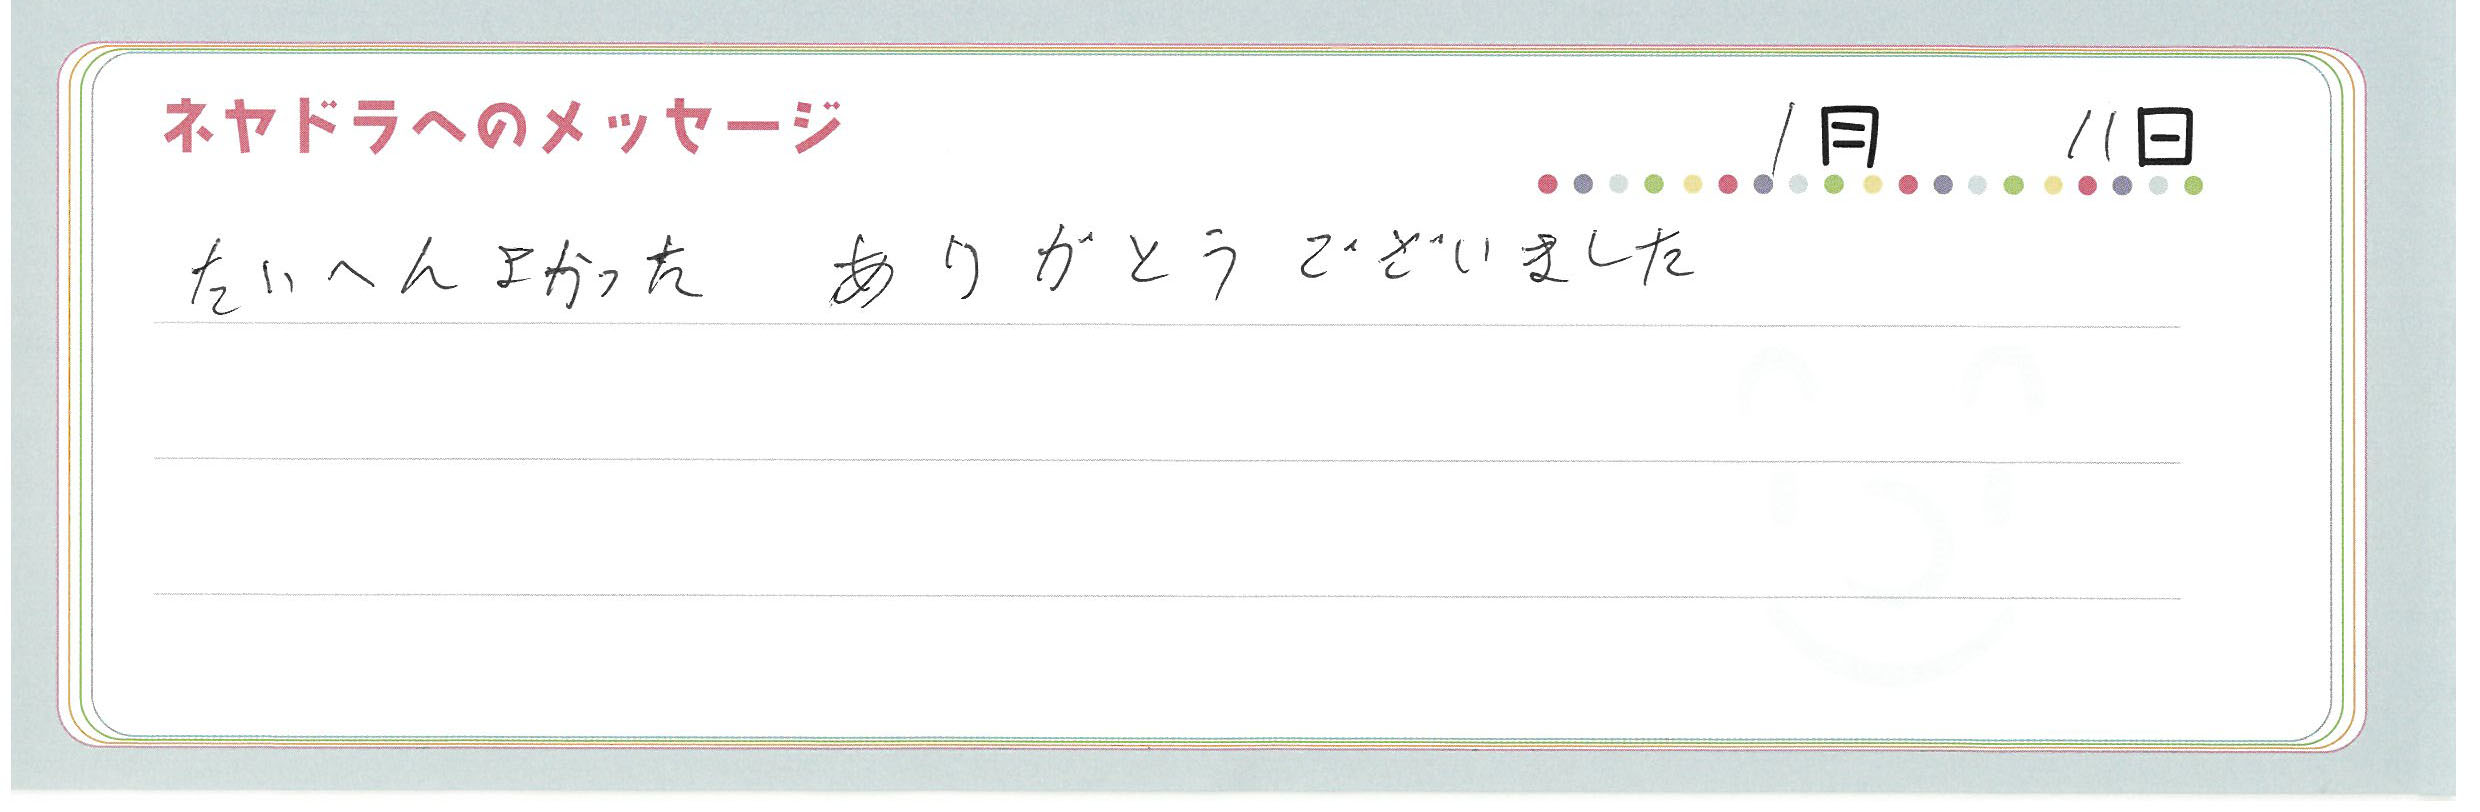 ネヤドラへのメッセージ
1月 11日
たいへんよかった ありがとうございました